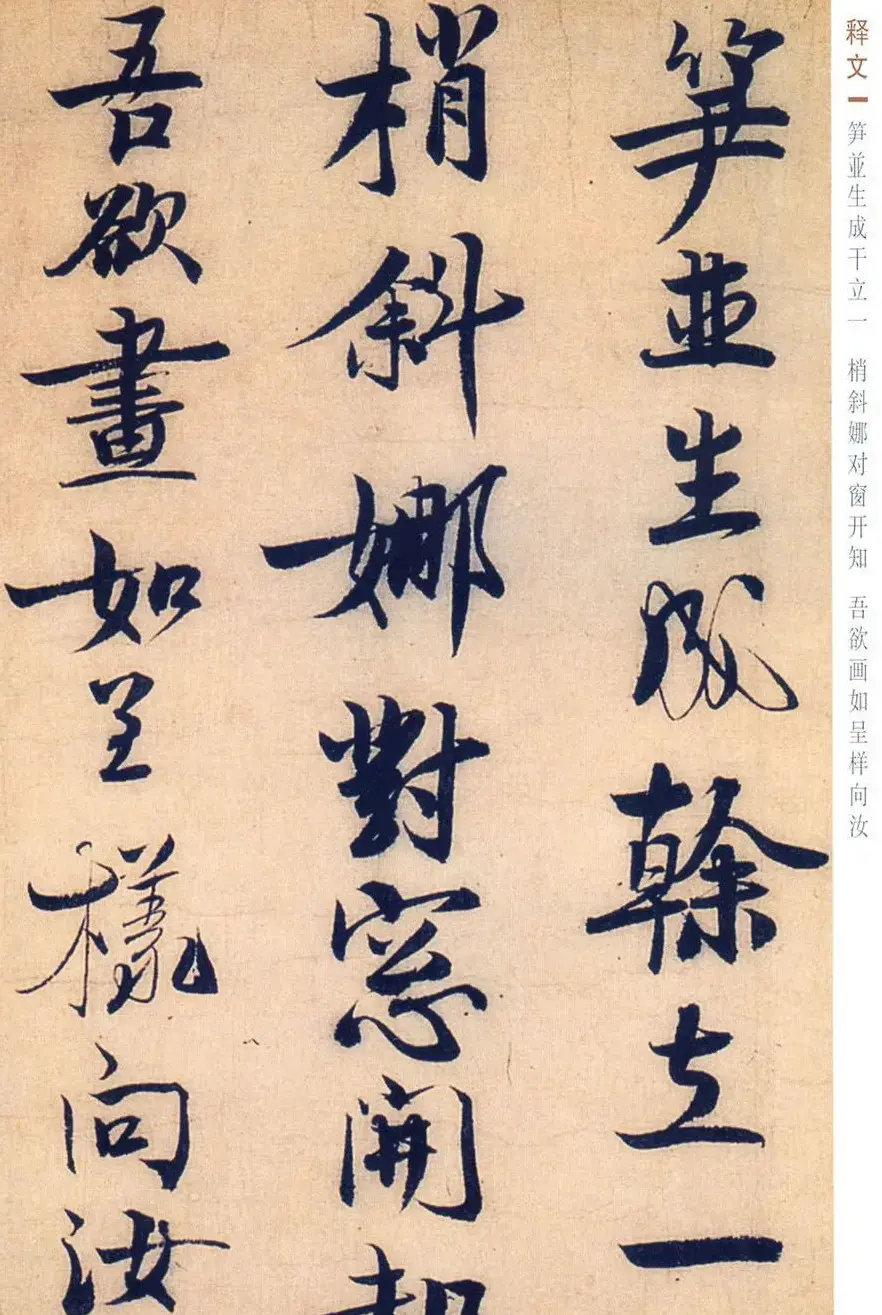 笋並生成幹立一
梢斜娜對窓開知
吾欲畫如呈樣向汝
释文
笋並生成干立一 梢斜娜对窗开知 吾欲画如呈样向汝